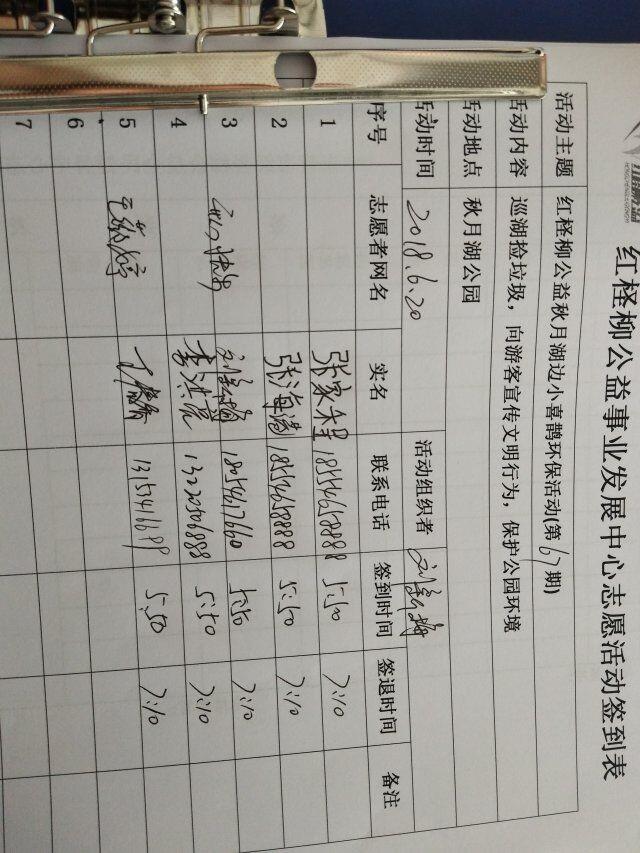 红柽柳公益事业发展中心志愿活动签到表
活动主题 红柽柳公益秋月湖边小喜鹊环保活动(第67期)
活动内容 巡湖捡垃圾，向游客宣传文明行为，保护公园环境
活动地点 秋月湖公园
活动时间 2018.6.20 活动组织者
序号 志愿者网名 实名 联系电话 签到时间 签退时间 备注
1 张家 18554658888 5:50 7:10
2 张海 18554658888 5:50 7:10
3 18054617660 5:50 7:10
4 李洪 13220506888 5:50 7:10
5 5:50 7:10
6
7